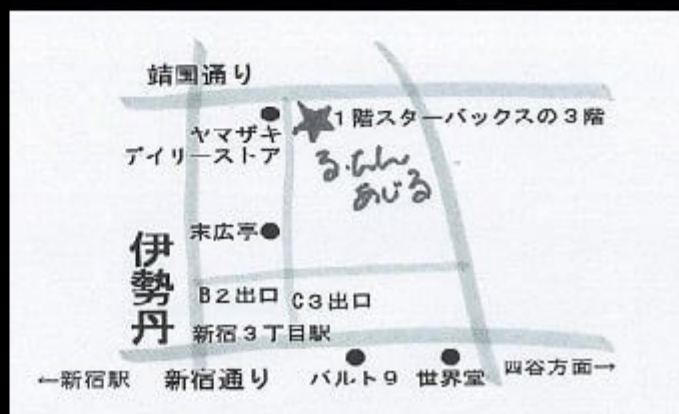 靖国通り
ヤマザキ
デイリーストア
1階スターバックスの3階
る・たん
あじる
末広亭
伊勢丹
B2出口
C3出口
新宿3丁目駅
←新宿駅
新宿通り
バルト9
世界堂
四谷方面→